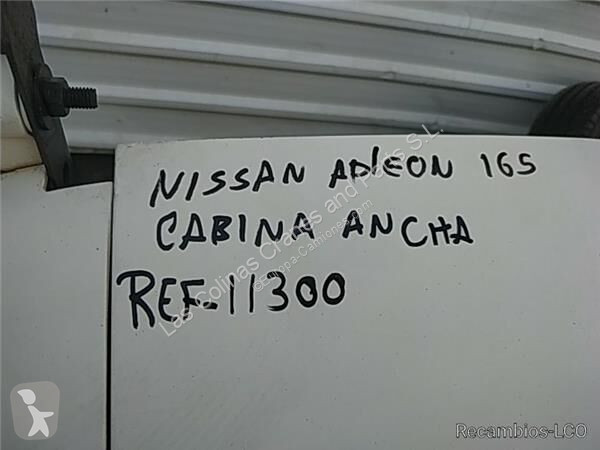 NISSAN ATLEON 165
CABINA ANCHA
REF-11300
Las Colinas Cranes and Parts S.L.
Europa-Camiones.com
Recambios-LCO